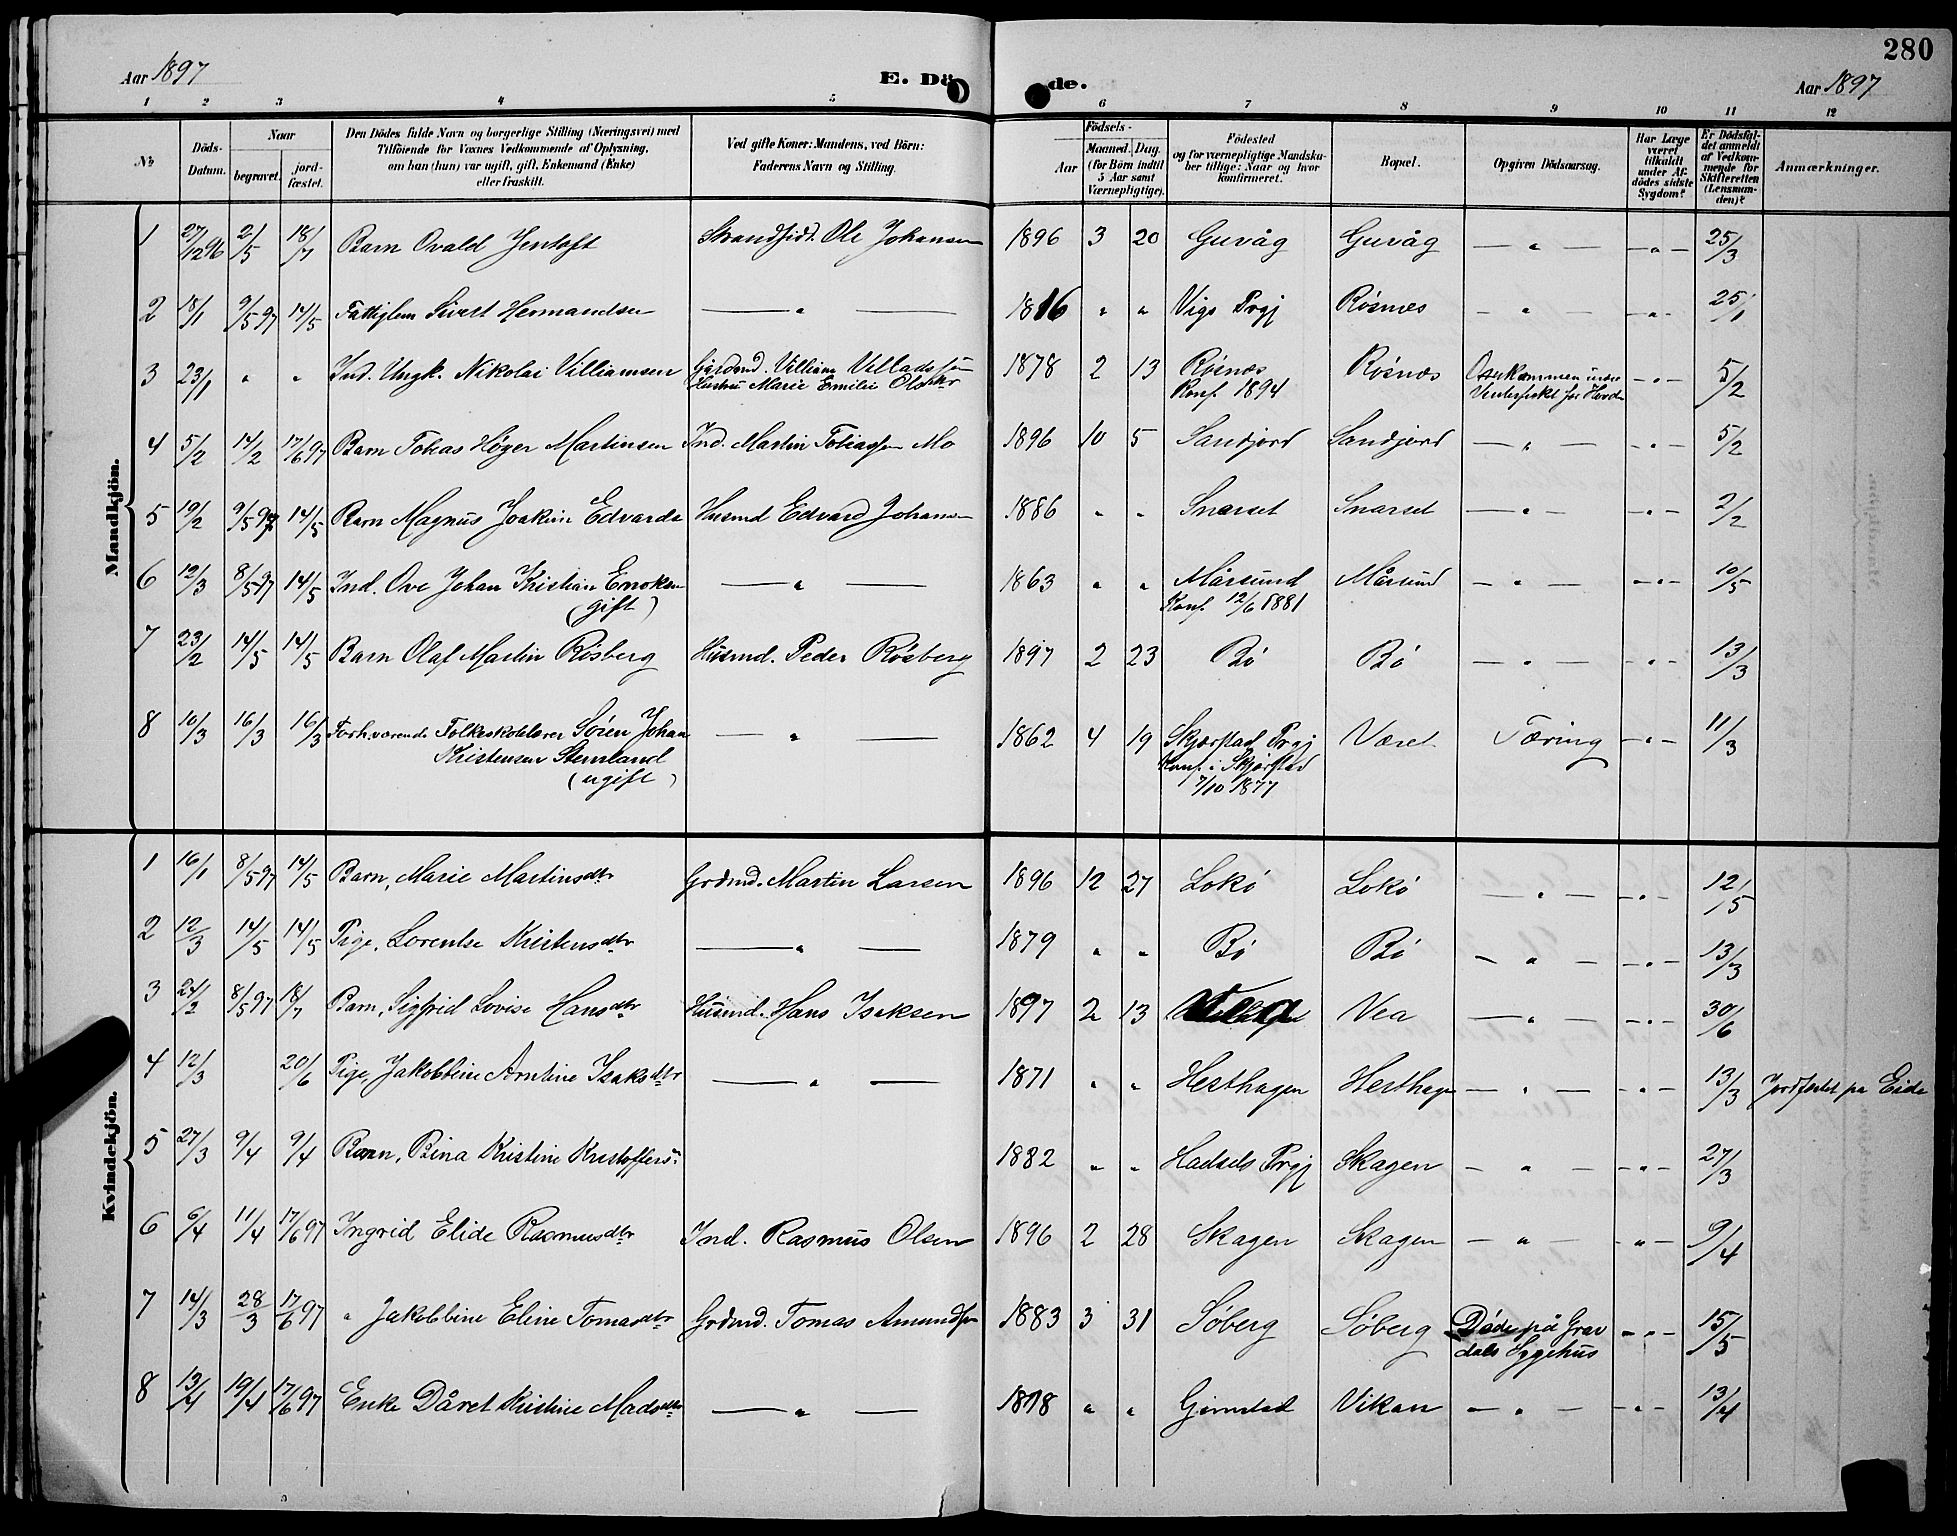 280
Aar 1897
E. Dö de.
Aar 1897
1 2 3 4 5 6 7 8 9 10 11 12
No
Döds-Datum.
Naar
begravet.
jord-fæstet.
Den Dödes fulde Navn og borgerlige Stilling (Næringsvei) med
Tilföiende for Voxnes Vedkommende af Oplysning,
om han (hun) var ugift, gift, Enkemand (Enke)
eller fraskilt.
Ved gifte Koner: Mandens, ved Börn:
Faderens Navn og Stilling.
Födsels-
Aar
Maaned. Dag.
(for Börn indtil
5 Aar samt
Værnepligtige).
Födested
og for værnepligtige Mandska-
ber tillige: Naar og hvor
konfirmeret.
Bopæl.
Opgiven Dödsaarsag.
Har Læge
været
tilkaldt
under Af-
dödes sidste
Sygdom?
Er Dödsfal-
det anmeldt
af Vedkom-
mende for
Skifteretten
(Lensman-
den)?
Anmærkninger.
Mandkjön.
1 27/12 96 2/5 18/7 Barn Ovald Jentoft Strandsidd. Ole Johansen 1896 3 20 Guvåg Guvåg — „ — – „ – 25/3
2 18/1 9/5 97 14/5 Fattiglem Sivert Hermandsen — „ — 1816 „ „ Vigs Prgj Røsnes — „ — – „ – 25/1
3 23/1 „ „ Ind. Ungk. Nikolai Villiamsen Gårdmd. Villiam Villadssen 1878 2 13 Røsnes Røsnes Omkommen under – „ – 5/2
Hustru Marie Emilie Olsdtr Konf. 1894 Vinterfisket for Hovden
4 5/2 14/2 17/6 97 Barn Tobias Høyer Martinsen Ind. Martin Tobiassen Mo 1896 10 5 Sandjord Sandjord — „ — – „ – 5/2
5 19/2 9/5 97 14/5 Barn Magnus Joakim Edvards Husmd Edvard Johans 1886 „ „ Snarset Snarset — „ — – „ – 2/2
6 12/3 8/5 97 14/5 Ind. Ove Johan Kristian Enoksen — „ — 1863 „ „ Mårsund Mårsund — „ — – „ – 10/5
(gift) Konf. 12/6 1881
7 23/2 14/5 14/5 Barn Olaf Martin Røsberg Husmd. Peder Røsberg 1897 2 23 Bø Bø — „ — – „ – 13/3
8 10/3 16/3 16/3 Forhværende Folkeskolelærer Søren Johan — „ — 1862 4 19 Skjærstad Prgj Været Tæring – „ – 11/3
Kristensen Stemland Konf. i Skjærstad
(ugift) 7/10 1877
Kvindekjön.
1 16/1 8/5 97 14/5 Barn, Marie Martinsdtr Grdmd. Martin Larsen 1896 12 27 Lokø Lokø — „ — – „ – 12/5
2 12/3 14/5 14/5 Pige, Lorentse Kristensdtr — „ — 1879 „ „ Bø Bø — „ — – „ – 13/3
3 24/2 8/5 97 18/7 Barn, Sigfrid Lovise Hansdtr Husmd. Hans Isaksen 1897 2 13 Vea Vea — „ — – „ – 30/6
4 12/3 20/6 Pige, Jakobbine Arntine Isaksdtr — „ — 1871 „ „ Hesthagen Hesthagen — „ — – „ – 13/3 Jordfestet på Eide
5 27/3 9/4 9/4 Barn, Bina Kristine Kristoffers 1882 „ „ Hadsels Prgj Skagen — „ — – „ – 27/3
6 6/4 11/4 17/6 97 Ingrid Elide Rasmusdtr Ind. Rasmus Olsen 1896 2 28 Skagen Skagen — „ — – „ – 9/4
7 14/3 28/3 17/6 97 „ Jakobbine Eline Tomasdtr Grdmd. Tomas Amundsen 1883 3 31 Søberg Søberg Døde på Grav – „ – 15/5
dals Sygehus
8 13/4 19/4 17/6 97 Enke Dåret Kristine Madsdtr — „ — 1818 „ „ Gimstad Vikan — „ — – „ – 13/4